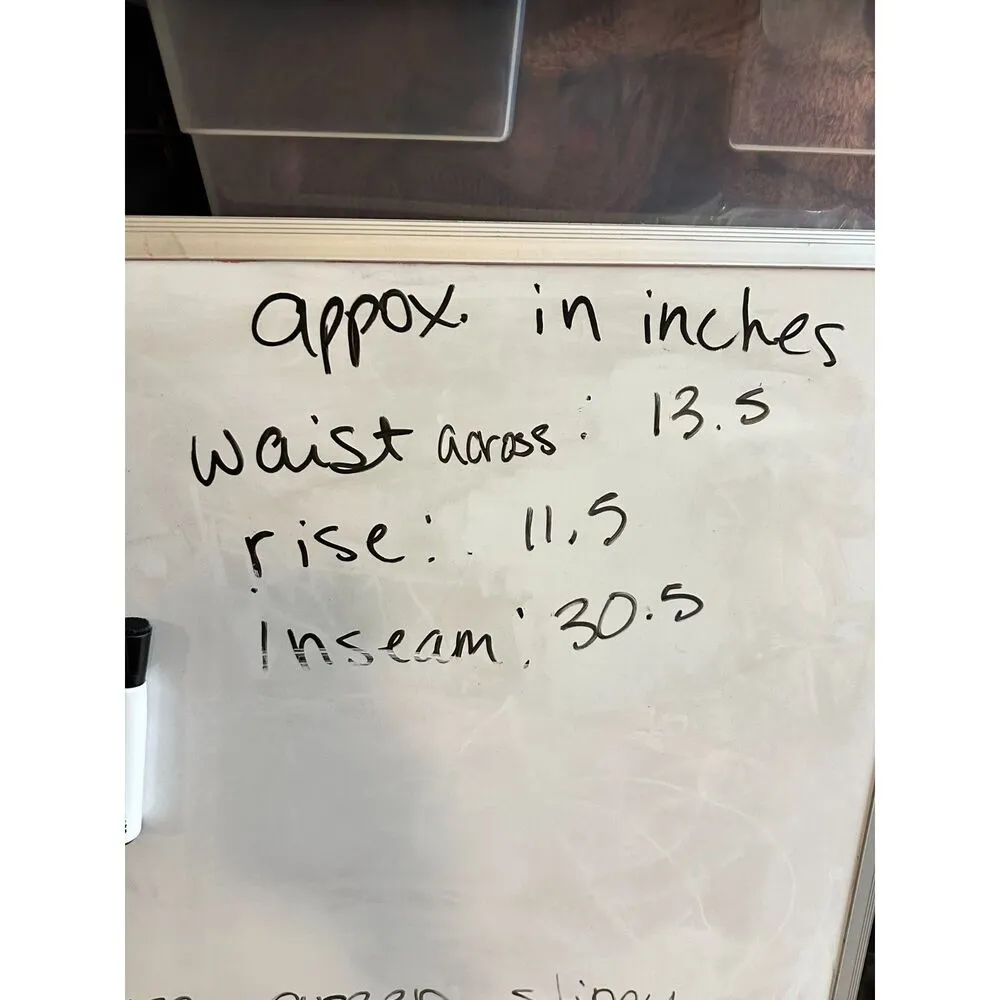 appox. in inches
waist across: 13.5
rise: 11.5
inseam: 30.5